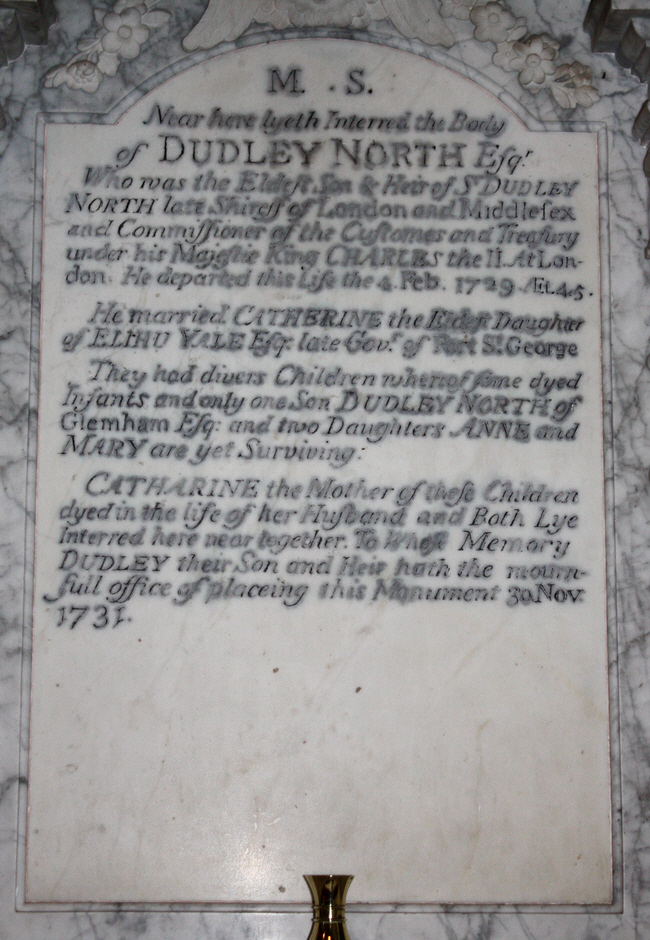 M. . S.
Near here lyeth Interred the Body
of DUDLEY NORTH Esqr.
Who was the Eldest Son & Heir of Sr. DUDLEY
NORTH late Shireff of London and Middlesex
and Commissioner of the Customes and Treasury
under his Majestie King CHARLES the II. At Lon-
don. He departed this Life the 4. Feb. 1729. Æt. 45.
He married CATHERINE the Eldest Daughter
of ELIHU YALE Esq: late Govr. of Fort St. George
They had divers Children whereof some dyed
Infants and only one Son DUDLEY NORTH of
Glemham Esq: and two Daughters ANNE and
MARY are yet Surviving:
CATHARINE the Mother of these Children
dyed in the life of her Husband and Both Lye
Interred here near together. To Whose Memory
DUDLEY their Son and Heir hath the mourn-
full office of placeing this Monument 30. Nov.
1731.